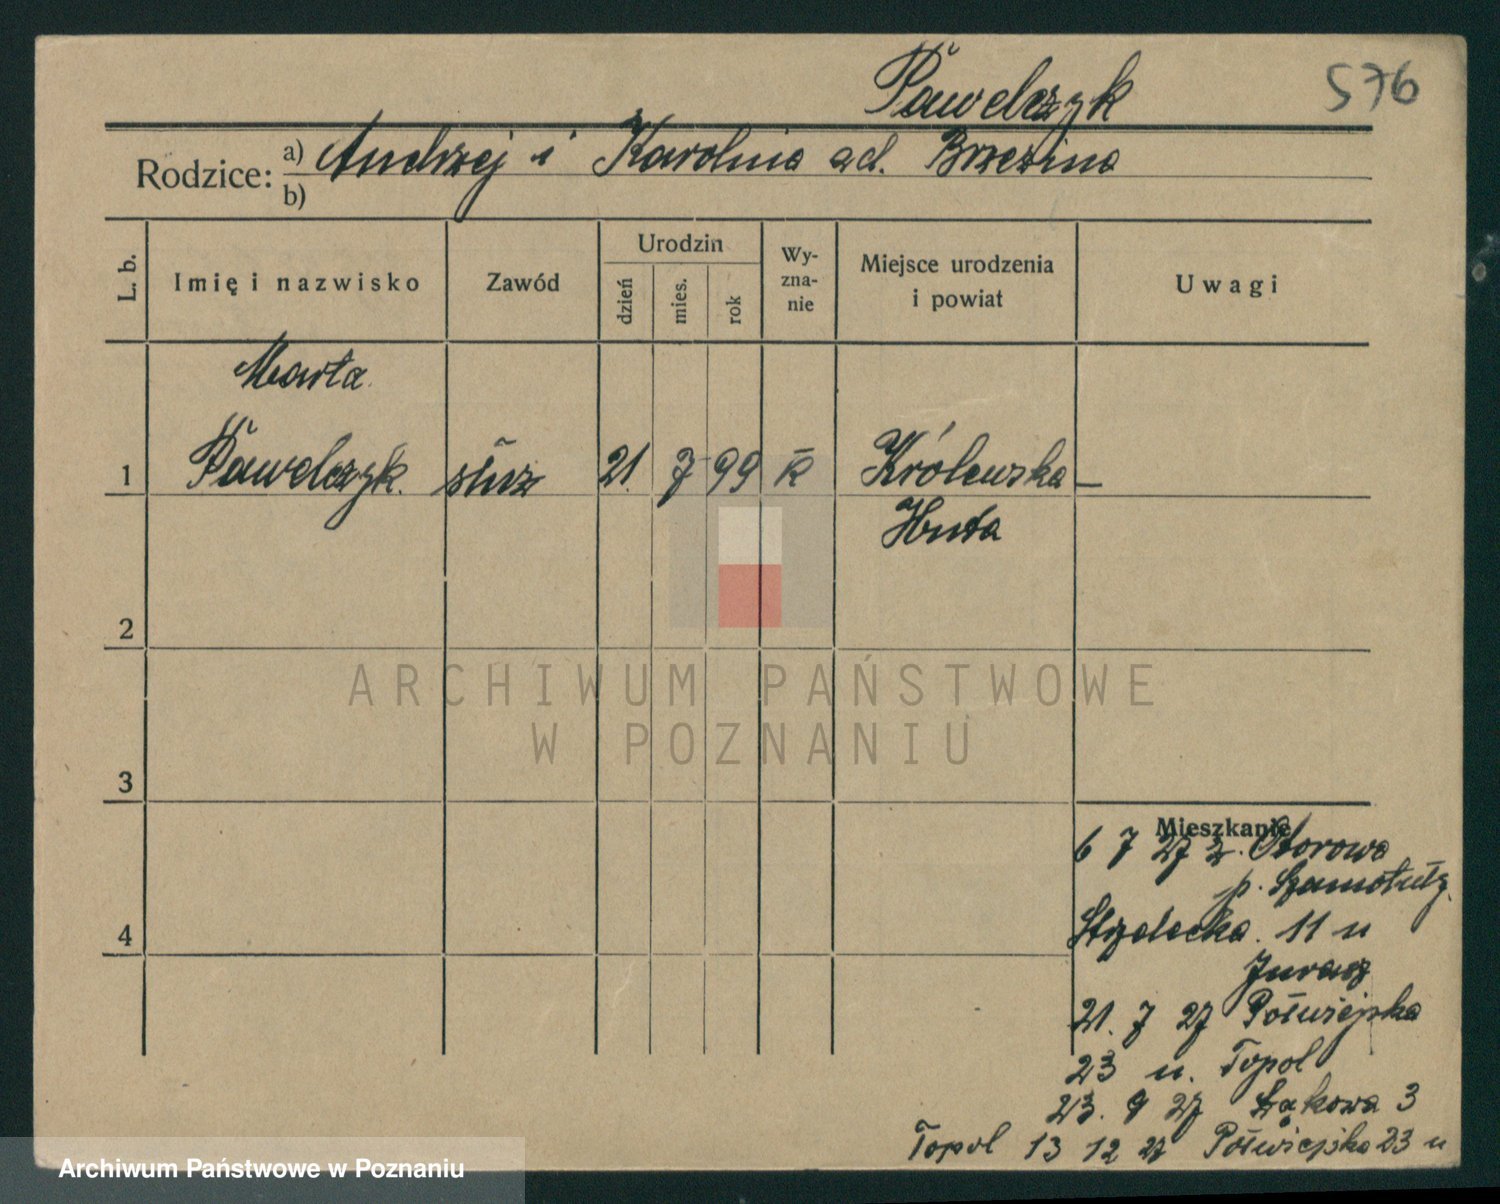 Pawelczyk 576
Rodzice: a) Andrzej i Karolina ad. Brzezina
b)
L. b. Imię i nazwisko Zawód Urodzin dzień mies. rok Wy-zna-nie Miejsce urodzenia i powiat Uwagi
Marta
1 Pawelczyk. służ 21. 7 99 k Królewska
Huta
2
ARCHIWUM PAŃSTWOWE
W POZNANIU
3
Mieszkanie
6 7 27 z. Otorowo
p. Szamotuły.
4 Strzelecka. 11 u
Jurasz
21. 7 27 Półwiejska
23 u. Topol
23. 9 27 Łąkowa 3
Topol 13 12 27 Półwiejska 23 u
Archiwum Państwowe w Poznaniu